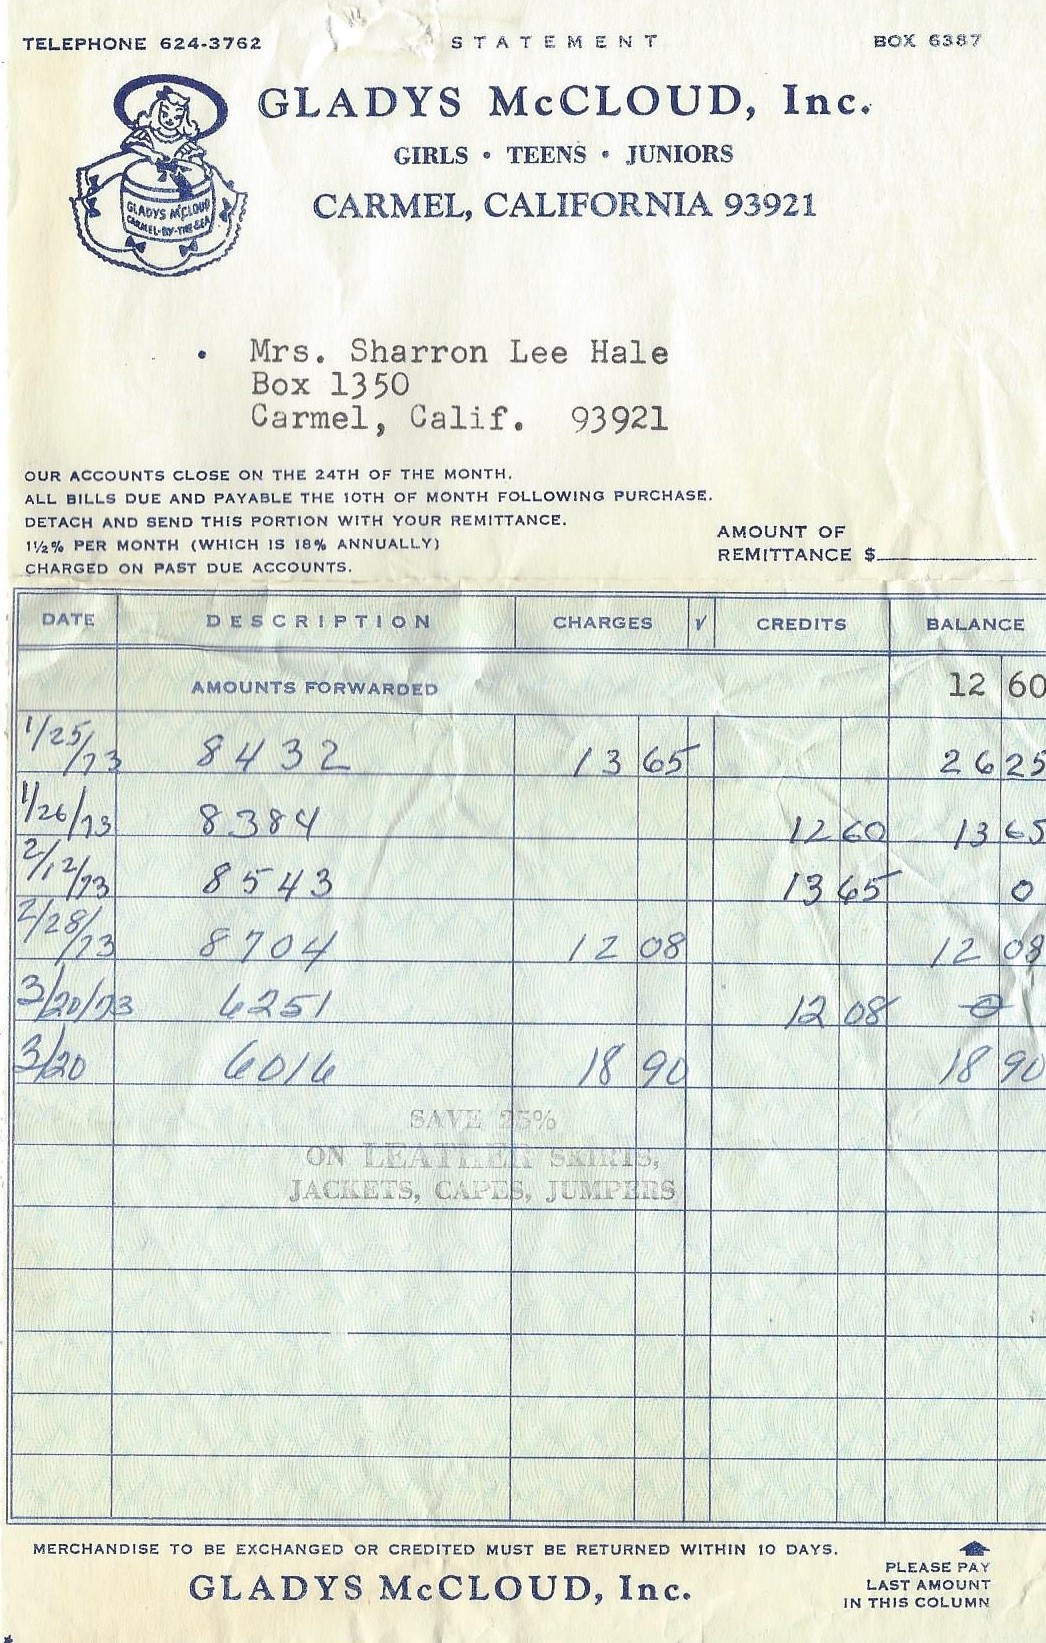 TELEPHONE 624-3762 STATEMENT BOX 6387
GLADYS McCLOUD, Inc.
GIRLS • TEENS • JUNIORS
CARMEL, CALIFORNIA 93921
GLADYS McCLOUD
CARMEL-BY-THE-SEA
Mrs. Sharron Lee Hale
Box 1350
Carmel, Calif. 93921
OUR ACCOUNTS CLOSE ON THE 24TH OF THE MONTH.
ALL BILLS DUE AND PAYABLE THE 10TH OF MONTH FOLLOWING PURCHASE.
DETACH AND SEND THIS PORTION WITH YOUR REMITTANCE.
1½% PER MONTH (WHICH IS 18% ANNUALLY)
CHARGED ON PAST DUE ACCOUNTS.
AMOUNT OF
REMITTANCE $
DATE DESCRIPTION CHARGES √ CREDITS BALANCE
AMOUNTS FORWARDED 12 60
1/25/73 8432 13 65 26 25
1/26/73 8384 12 60 13 65
2/12/73 8543 13 65 0
2/28/73 8704 12 08 12 08
3/20/73 6251 12 08 0
3/20 6016 18 90 18 90
SAVE 25%
ON LEATHER SKIRTS,
JACKETS, CAPES, JUMPERS
MERCHANDISE TO BE EXCHANGED OR CREDITED MUST BE RETURNED WITHIN 10 DAYS.
GLADYS McCLOUD, Inc.
PLEASE PAY
LAST AMOUNT
IN THIS COLUMN